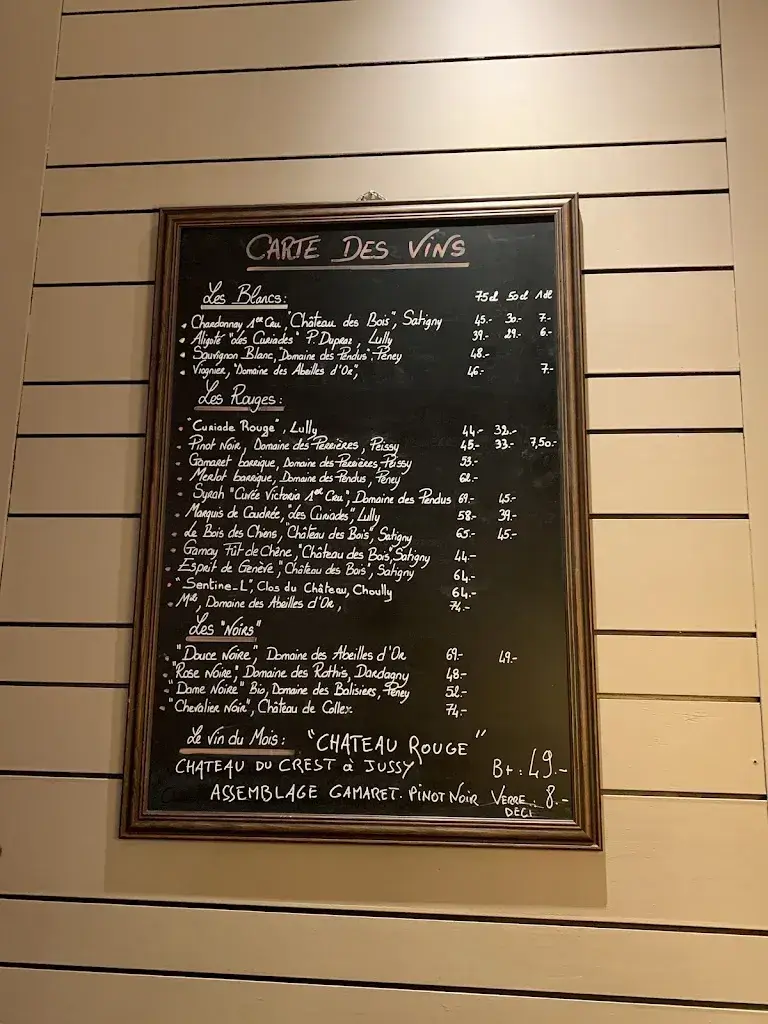 CARTE DES VINS
Les Blancs: 75cl 50cl 1dl
Chardonnay 1er Cru, "Château des Bois", Satigny 45.- 30.- 7.-
Aligoté "des Curiades" P. Dupraz, Lully 39.- 29.- 6.-
Sauvignon Blanc, "Domaine des Pendus", Peney 48.-
Viognier, "Domaine des Abeilles d'Or", 46.- 7.-
Les Rouges:
"Curiade Rouge", Lully 44.- 32.-
Pinot Noir, Domaine des Perrières, Peissy 45.- 33.- 7,50.-
Gamaret barrique, Domaine des Perrières, Peissy 53.-
Merlot barrique, Domaine des Pendus, Peney 62.-
Syrah "Cuvée Victoria 1er Cru", Domaine des Pendus 69.- 45.-
Marquis de Coudrée, "des Curiades", Lully 58.- 39.-
Le Bois des Chiens, "Château des Bois", Satigny 65.- 45.-
Gamay Fût de Chêne, "Château des Bois", Satigny 44.-
Esprit de Genève, "Château des Bois", Satigny 64.-
"Sentine-L", Clos du Château, Choully 64.-
Domaine des Abeilles d'Or, 74.-
Les "Noirs"
"Douce Noire", Domaine des Abeilles d'Or 69.- 49.-
"Rose Noire", Domaine des Rothis, Dardagny 48.-
"Dame Noire" Bio, Domaine des Balisiers, Peney 52.-
"Chevalier Noir", Château de Collex 74.-
Le Vin du Mois: "CHATEAU ROUGE"
CHATEAU DU CREST à JUSSY Bt: 49.-
ASSEMBLAGE GAMARET. PINOT NOIR VERRE: 8.-
DECI